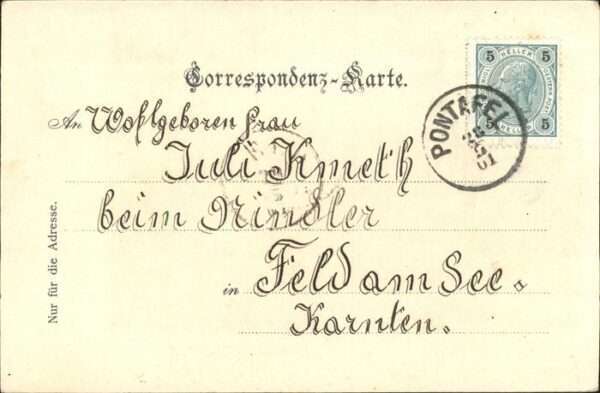 5 HELLER 5
5 5
Correspondenz-Karte.
PONTAFEL
An Wohlgeboren Frau
Juli Kmeth
beim Rindler
Nur für die Adresse.
in Feld am See.
Kärnten.